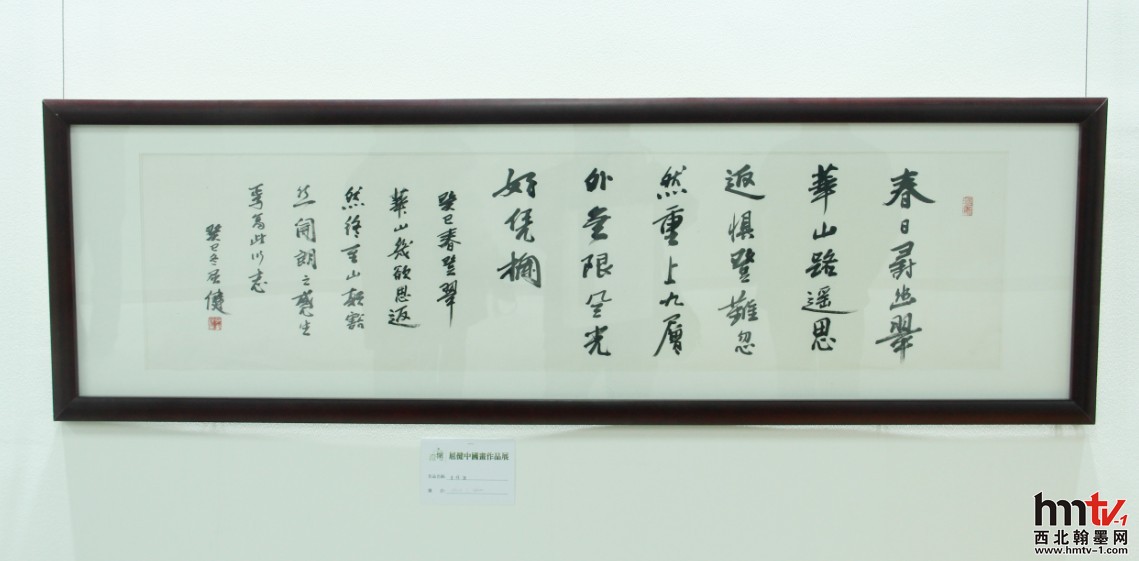 春日尋幽翠
華山路遥思
返惧登難忽
然重上九層
外無限風光
好凭欄
癸巳春登翠
華山幾欲思返
然終至山巔豁
然開朗之感生
焉爲此以志
癸巳冬屈健
屈健中國畫作品展
hmtv-1
西北翰墨网
www.hmtv-1.com